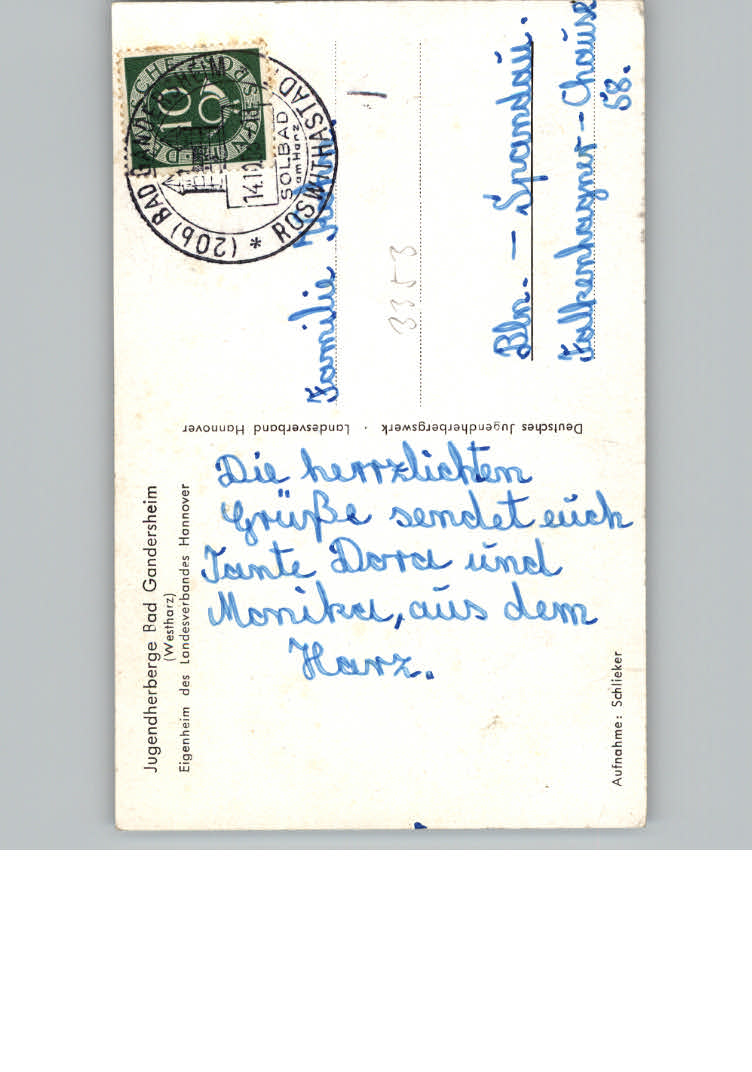 Jugendherberge Bad Gandersheim
(Westharz)
Eigenheim des Landesverbandes Hannover
Die herrzlichten
Grüße sendet euch
Tante Dora und
Monika, aus dem
Harz.
Aufnahme: Schlieker
Deutsches Jugendherbergswerk · Landesverband Hannover
DEUTSCHE BUNDESPOST
10
(20b) BAD GANDERSHEIM
* ROSWITHASTADT
SOLBAD
am Harz
14.10.
Familie
3353
Bln. – Spandau.
Falkenhagner – Chause
58.